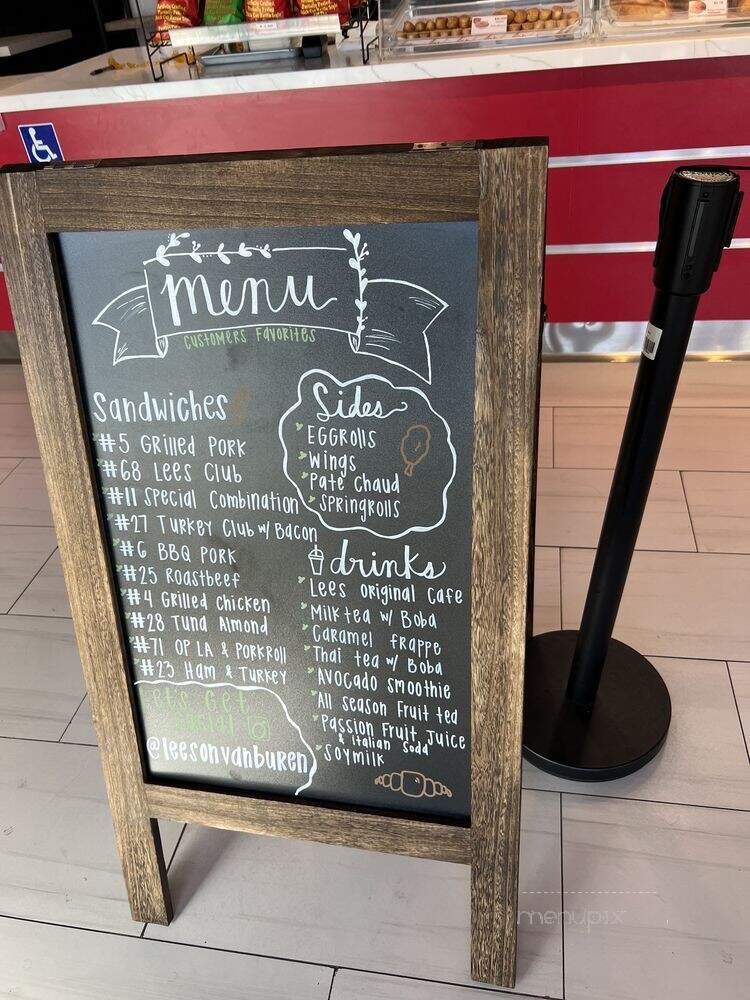 menu
CUSTOMERS FAVORITES
Sandwiches
#5 GRILLED PORK
#68 LEES CLUB
#11 SPECIAL COMBINATION
#27 TURKEY CLUB W/ BACON
#6 BBQ PORK
#25 ROASTBEEF
#4 GRILLED CHICKEN
#28 TUNA ALMOND
#71 OP LA & PORKROLL
#23 HAM & TURKEY
LET'S GET
SOCIAL
@leesonvanburen
Sides
EGGROLLS
WINGS
PATE CHAUD
SPRINGROLLS
drinks
LEES ORIGINAL CAFE
MILK TEA W/ BOBA
CARAMEL FRAPPE
THAI TEA W/ BOBA
AVOCADO SMOOTHIE
ALL SEASON FRUIT TEA
PASSION FRUIT JUICE
& ITALIAN SODA
SOYMILK
menupix